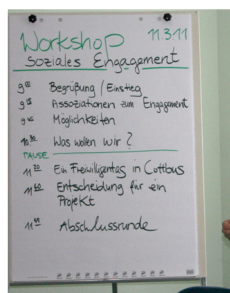 Workshop 11.3.11
Soziales Engagement
9⁰⁰ Begrüßung / Einstieg
9¹⁵ Assoziationen zum Engagement
9⁴⁵ Möglichkeiten
10³⁰ Was wollen wir?
PAUSE
11²⁰ Ein Freiwilligentag in Cottbus
11⁴⁰ Entscheidung für ein
Projekt
11⁵⁵ Abschlussrunde